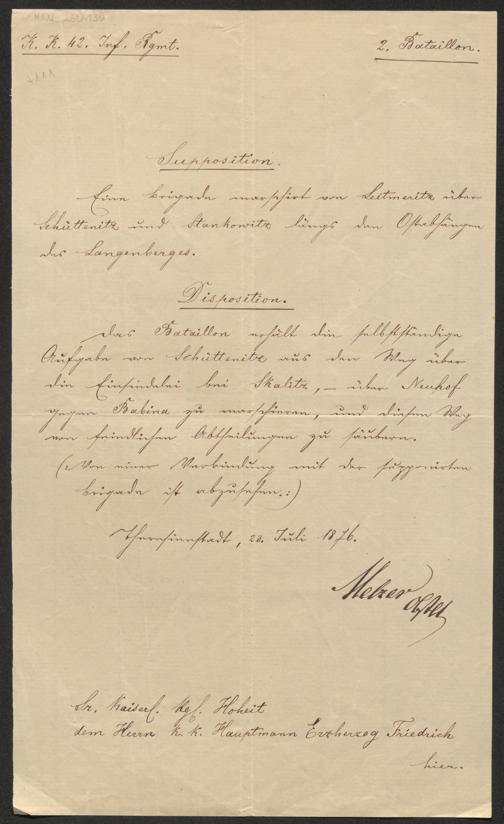 K. K. 42. Inf. Rgmt.
2. Bataillon.
Supposition.
Eine Brigade marschirt von Leitmeritz über
Schüttenitz und Stankowitz längs den Ostabhängen
des Langenberges.
Disposition.
Das Bataillon erhält die selbstständige
Aufgabe von Schüttenitz aus den Weg über
die Einsiedelei bei Skalitz, – über Neuhof
gegen Babina zu marschieren, und diesen Weg
von feindlichen Abtheilungen zu säubern.
(:Von einer Verbindung mit der supponirten
Brigade ist abzusehen.:)
Theresienstadt, 20. Juli 1876.
Melzer
Sr. Kaiserl. Kgl. Hoheit
dem Herrn k. k. Hauptmann Erzherzog Friedrich
hier.